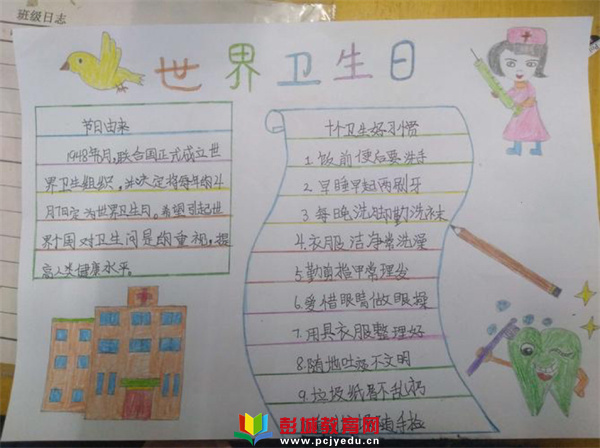 班级日志
世界卫生日
节日由来
1948年4月,联合国正式成立世
界卫生组织,决定将每年的4
月7日定为世界卫生日。希望引起世
界各国对卫生问题的重视,提
高人类健康水平。
十个卫生好习惯
1.饭前便后要洗手
2.早睡早起两刷牙
3.每晚洗脚勤洗袜
4.衣服洁净常洗澡
5.勤剪指甲常理发
6.爱惜眼睛做眼操
7.用具衣服整理好
8.随地吐痰不文明
9.垃圾纸屑不乱扔
彭城教育网
www.pcjyedu.cn